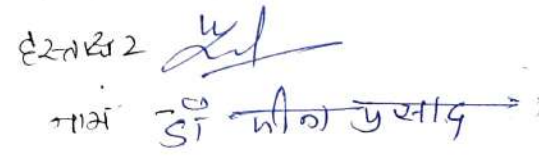 हस्ताक्षर
नाम डॉ गीता प्रसाद